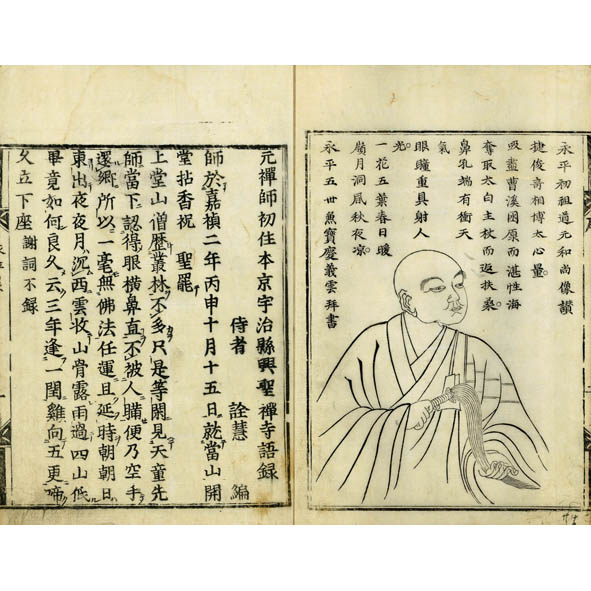 永平初祖道元和尚像讃
捷俊奇相博大心量。
吸盡曹溪囦原而湛性海
奪取太白主杖而遊扶桒。
鼻孔端有衝天
氣
眼瞳重具射人
光。
一花五葉春日暖
扇月洞風秋夜凉。
永平五世寶慶義雲拜書
元禪師初住本京宇治縣興聖禪寺語録
侍者 詮慧 編
師於嘉禎二年丙申十月十五日就當山開
堂拈香祝 聖罷
上堂山僧歷叢林不多只是等閑見天童先
師當下認得眼橫鼻直不被人瞞便乃空手
還郷所以一毫無佛法任運且延時朝朝日
東出夜夜月沉西雲收山骨露雨過四山低
畢竟如何良久云三年逢一閏雞向五更啼
久立下座 謝詞不録